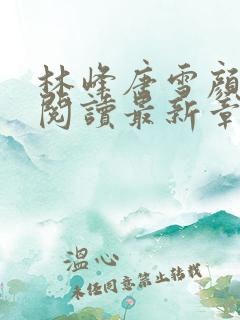 林峰唐雪顏
閱讀最新章
溫心
未经同意禁止转载